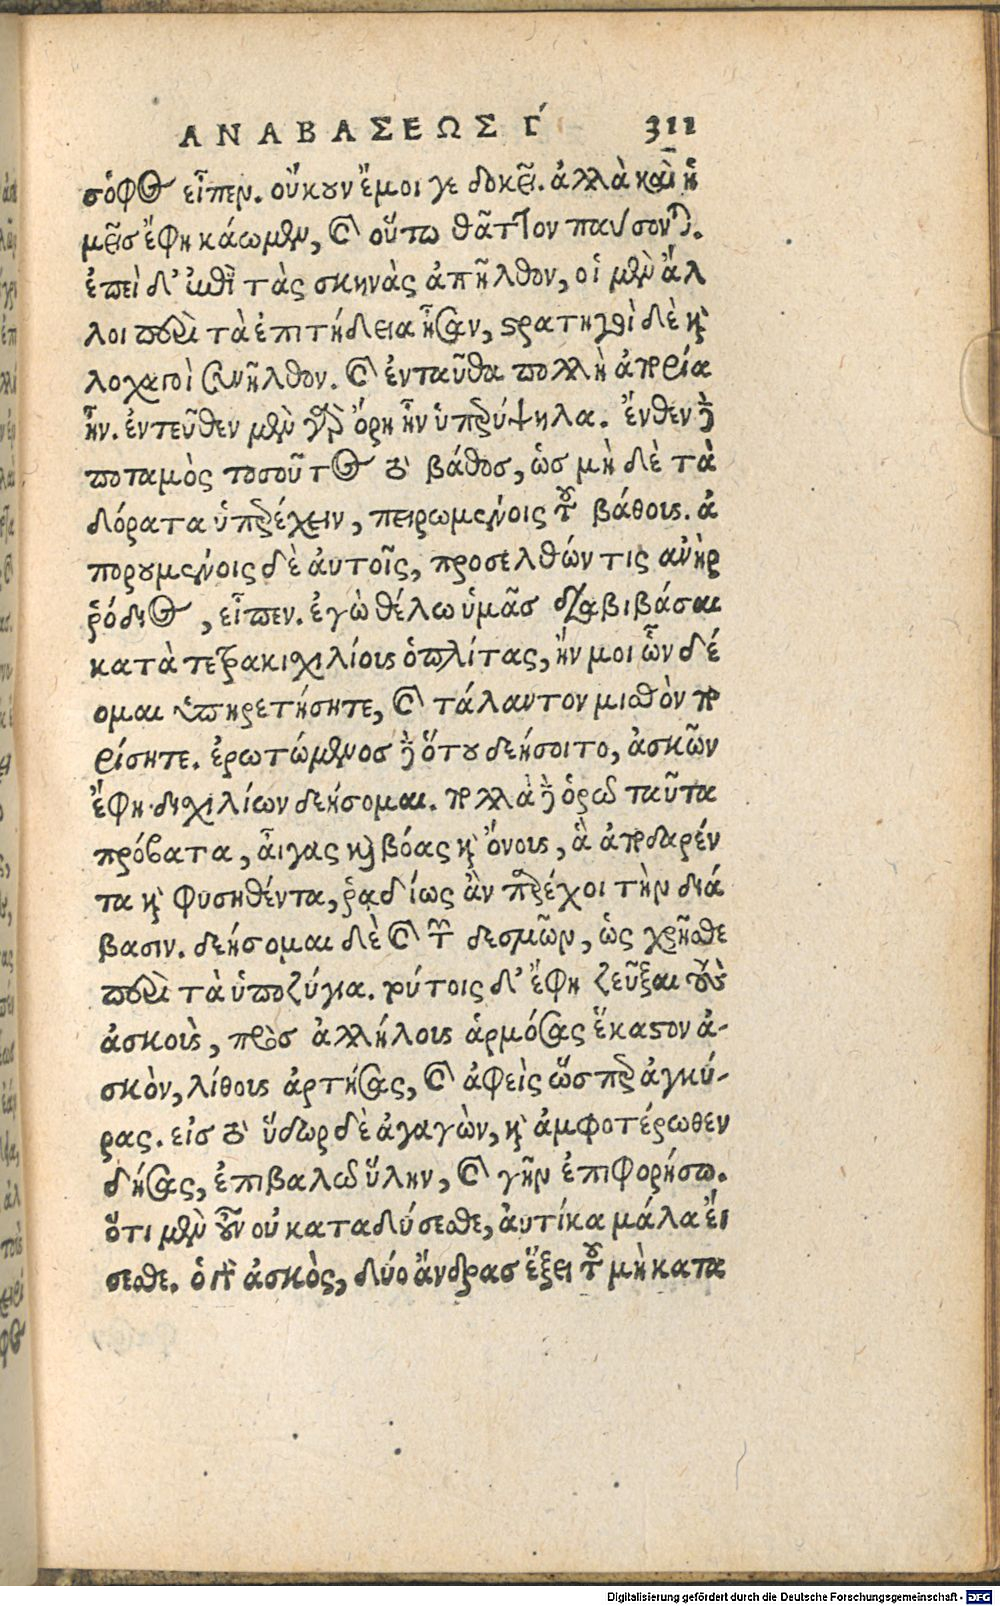 ΑΝΑΒΑΣΕΩΣ Γ 311
σόφος εἶπεν. οὔκουν ἔμοι γε δοκεῖ. ἀλλὰ καὶ ἡ
μεῖς ἔφη κάωμεν, καὶ οὕτω θᾶττον παύσονται.
ἐπεὶ δ' ἐπὶ τὰς σκηνὰς ἀπῆλθον, οἱ μὲν ἄλ
λοι περὶ τὰ ἐπιτήδεια ἦσαν, στρατηγοὶ δὲ καὶ
λοχαγοὶ συνῆλθον. καὶ ἐνταῦθα πολλὴ ἀπορία
ἦν. ἐντεῦθεν μὲν γὰρ ὄρη ἦν ὑπερύψηλα. ἔνθεν δὲ
ποταμὸς τοσοῦτος τὸ βάθος, ὡς μὴ δὲ τὰ
δόρατα ὑπερέχειν, πειρωμένοις τοῦ βάθους. ἀ
πορουμένοις δὲ ἀυτοῖς, προσελθών τις ἀνὴρ
ῥόδιος, εἶπεν. ἐγὼ θέλω ὑμᾶς διαβιβάσαι
κατὰ τετρακιχιλίους ὁπλίτας, ἤν μοι ὧν δέ
ομαι ὑπηρετήσητε, καὶ τάλαντον μισθὸν πο
ρίσητε. ἐρωτώμενος δὲ ὅτου δεήσοιτο, ἀσκῶν
ἔφη δισχιλίων δεήσομαι. πολλὰ δὲ ὁρῶ ταῦτα
πρόβατα, ἆιγας καὶ βόας καὶ ὄνους, ἃ ἀποδαρέν
τα καὶ φυσηθέντα, ῥαδίως ἂν παρέχοι τὴν διά
βασιν. δεήσομαι δὲ καὶ τῶν δεσμῶν, ὡς χρῆσθε
περὶ τὰ ὑποζύγια. τούτοις δ' ἔφη ζεῦξαι τοὺς
ἀσκοὺς, πρὸς ἀλλήλους ἁρμόσας ἕκαστον ἀ-
σκὸν, λίθους ἀρτήσας, καὶ ἀφεὶς ὥσπερ ἀγκύ-
ρας. εἰς τὸ ὕδωρ δὲ ἀγαγὼν, καὶ ἀμφοτέρωθεν
δήσας, ἐπιβαλῶ ὕλην, καὶ γῆν ἐπιφορήσω.
ὅτι μὲν οὖν οὐ καταδύσεσθε, ἀυτίκα μάλα ἔι
σεσθε. ὁ γὰρ ἀσκὸς, δύο ἄνδρας ἕξει τοῦ μὴ κατα
Digitalisierung gefördert durch die Deutsche Forschungsgemeinschaft - DFG